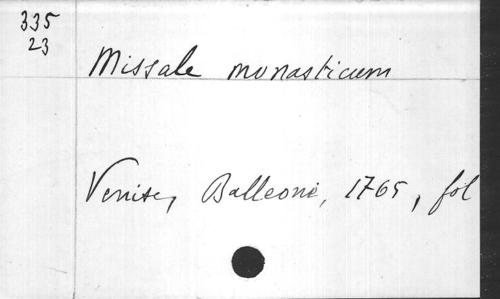 335
23
Missale monasticum
Venise, Balleoni, 1765, fol